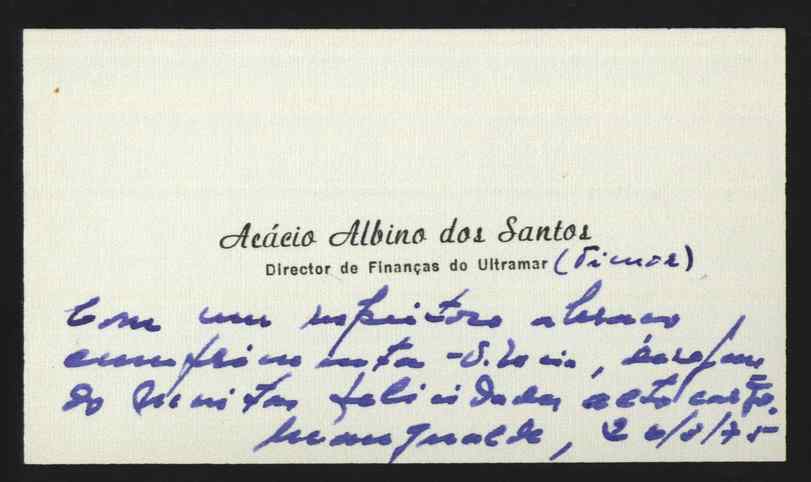 Acácio Albino dos Santos
Director de Finanças do Ultramar (Timor)
Com um respeitoso abraço
cumprimenta -O. , desejan
do Muitas felicidades alto cargo.
Mangualde, 26/8/75